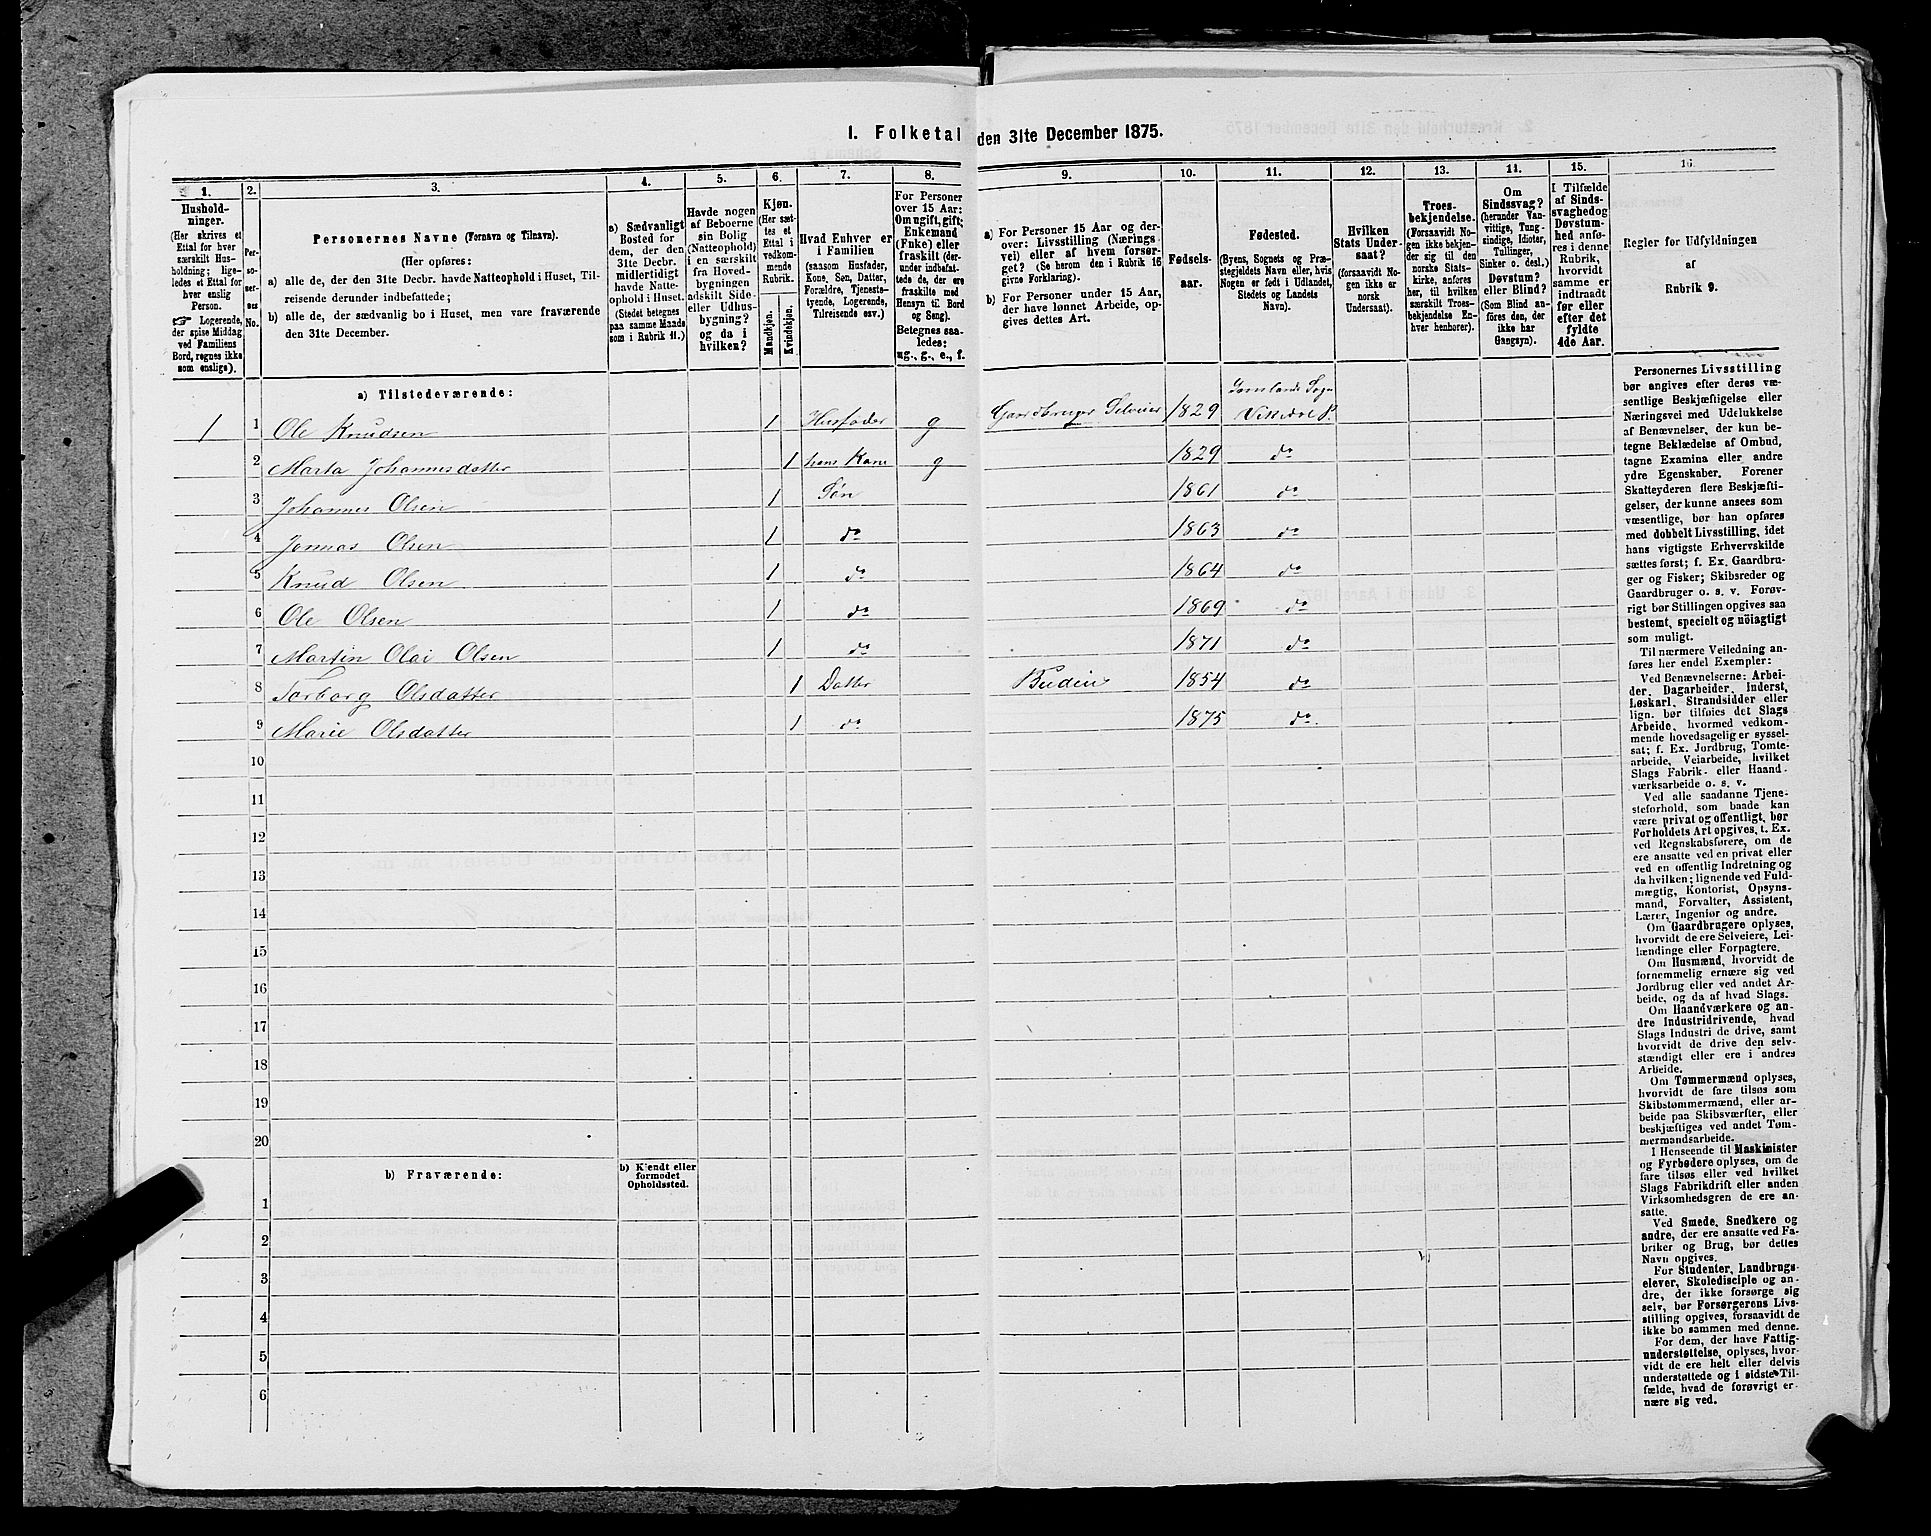 I. Folketal den 31te December 1875.
1. 2. 3. 4. 5. 6. 7. 8. 9. 10. 11. 12. 13. 14. 15. 16.
Hushold-
ninger.
(Her skrives et
Ettal for hver
særskilt Hus-
holdning; lige-
ledes et Ettal for
hver enslig
Person.
☞ Logerende,
der spise Middag
ved Familiens
Bord, regnes ikke
som enslige).
Per-
so-
ner-
nes
No.
Personernes Navne (Fornavn og Tilnavn).
(Her opføres:
a) alle de, der den 31te Decbr. havde Natteophold i Huset, Til-
reisende derunder indbefattede;
b) alle de, der sædvanlig bo i Huset, men vare fraværende
den 31te December.
a) Sædvanligt
Bosted for
dem, der den
31te Decbr.
midlertidigt
havde Natte-
ophold i Huset.
(Stedet betegnes
paa samme Maade
som i Rubrik 11.)
Havde nogen
af Beboerne
sin Bolig
(Natteophold)
i en særskilt
fra Hoved-
bygningen
adskilt Side-
eller Udhus-
bygning?
og da i
hvilken?
Kjøn.
(Her sæt-
tes et
Ettal i
vedkom-
mende
Rubrik.
Mandkjøn.
Kvindekjøn.
Hvad Enhver er
i Familien
(saasom Husfader,
Kone, Søn, Datter,
Forældre, Tjeneste-
tyende, Logerende,
Tilreisende osv.)
For Personer
over 15 Aar:
Om ugift, gift,
Enkemand
(Enke) eller
fraskilt (der-
under indbefat-
tede de, der ere
fraskilte med
Hensyn til Bord
og Seng).
Betegnes saa-
ledes:
ug., g., e., f.
a) For Personer 15 Aar og der-
over: Livsstilling (Nærings
vei) eller af hvem forsør-
get? (Se herom den i Rubrik 16
givne Forklaring).
b) For Personer under 15 Aar,
der have lønnet Arbeide, op-
gives dettes Art.
Fødsels-
aar.
Fødested.
(Byens, Sognets og Præ-
stegjeldets Navn eller, hvis
Nogen er født i Udlandet,
Stedets og Landets
Navn).
Hvilken
Stats Under-
saat?
(forsaavidt No-
gen ikke er
norsk
Undersaat).
Troes-
bekjendelse.
(Forsaavidt No-
gen ikke bekjen-
der sig til den
norske Stats-
kirke, anføres
her, til hvilken
særskilt Troes-
bekjendelse En-
hver henhører).
Om
Sindssvag?
(herunder Van-
vittige, Tung-
sindige, Idioter,
Tullinger,
Sinker o. desl.)
Døvstum?
eller Blind?
(Som Blind an-
føres den, der
ikke har
Gangsyn).
I Tilfælde
af Sinds-
svaghed og
Døvstum-
hed anfø-
res i denne
Rubrik,
hvorvidt
samme er
indtraadt
før eller
efter det
fyldte
4de Aar.
Regler for Udfyldningen
af
Rubrik 9.
a) Tilstedeværende:
1 1 Ole Knudsen 1 Husfader g Gaardbruger Selveier 1829 Sogn
2 Marta Johannesdatter 1 hans Kone g 1829 do
3 Johannes Olsen 1 Søn 1861 do
4 Jonnas Olsen 1 do 1863 do
5 Knud Olsen 1 do 1864 do
6 Ole Olsen 1 do 1869 do
7 Martin Olai Olsen 1 do 1871 do
8 Torborg Olsdatter 1 Datter Budeie 1854 do
9 Marie Olsdatter 1 do 1875 do
10
11
12
13
14
15
16
17
18
19
20
b) Fraværende:
b) Kjendt eller
formodet
Opholdssted.
1
2
3
4
5
6
Personernes Livsstilling
bør angives efter deres væ-
sentlige Beskjæftigelse eller
Næringsvei med Udelukkelse
af Benævnelser, der kun be-
tegne Beklædelse af Ombud,
tagne Examina eller andre
ydre Egenskaber. Forener
Skatteyderen flere Beskjæfti-
gelser, der kunne ansees som
væsentlige, bør han opføres
med dobbelt Livsstilling, idet
hans vigtigste Erhvervskilde
sættes først; f. Ex. Gaardbru-
ger og Fisker; Skibsreder og
Gaardbruger o. s. v. Forøv-
rigt bør Stillingen opgives saa
bestemt, specielt og nöiagtigt
som muligt.
Til nærmere Veiledning an-
føres her endel Exempler:
Ved Benævnelserne: Arbei-
der, Dagarbeider, Inderst,
Løskarl, Strandsidder eller
lign. bør tilføies det Slags
Arbeide, hvormed vedkom-
mende hovedsagelig er syssel-
sat; f. Ex. Jordbrug, Tomte-
arbeide, Veiarbeide, hvilket
Slags Fabrik- eller Haand-
værksarbeide o. s. v.
Ved alle saadanne Tjene-
steforhold, som baade kan
være privat og offentligt, bør
Forholdets Art opgives, t. Ex.
ved Regnskabsførere, om de
ere ansatte ved en privat eller
ved en offentlig Indretning og
da hvilken; lignende ved Fuld-
mægtig, Kontorist, Opsyns-
mand, Forvalter, Assistent,
Lærer, Ingeniør og andre.
Om Gaardbrugere oplyses,
hvorvidt de ere Selveiere, Lei-
lændinge eller Forpagtere.
Om Husmænd, hvorvidt de
fornemmelig ernære sig ved
Jordbrug eller ved andet Ar-
beide, og da af hvad Slags.
Om Haandværkere og an-
dre Industridrivende, hvad
Slags Industri de drive, samt
hvorvidt de drive den selv-
stændigt eller ere i andres
Arbeide.
Om Tømmermænd oplyses,
hvorvidt de fare tilsøs som
Skibstømmermænd, eller ar-
beide paa Skibsværfter, eller
beskjæftiges ved andet Tøm-
mermandsarbeide.
I Henseende til Maskinister
og Fyrbødere oplyses, om de
fare tilsøs eller ved hvilket
Slags Fabrikdrift eller anden
Virksomhedsgren de ere an-
satte.
Ved Smede, Snedkere og
andre, der ere ansatte ved Fa-
briker og Brug, bør dettes
Navn opgives.
For Studenter, Landbrugs-
elever, Skoledisciple og an-
dre, der ikke forsørge sig
selv, bør Forsørgerens Livs-
stilling opgives, forsaavidt de
ikke bo sammen med denne.
For dem, der have Fattig-
understøttelse, oplyses, hvor-
vidt de ere helt eller delvis
understøttede og i sidste Til-
fælde, hvad de forøvrigt er-
nære sig ved.